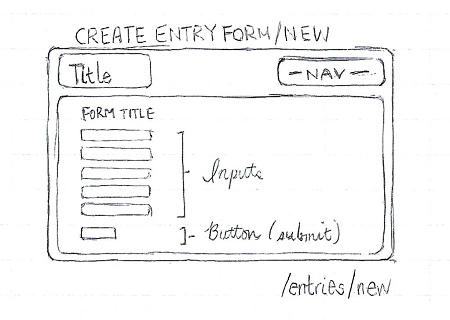 CREATE ENTRY FORM/NEW
Title
-NAV-
FORM TITLE
Inputs
Button (submit)
/entries/new